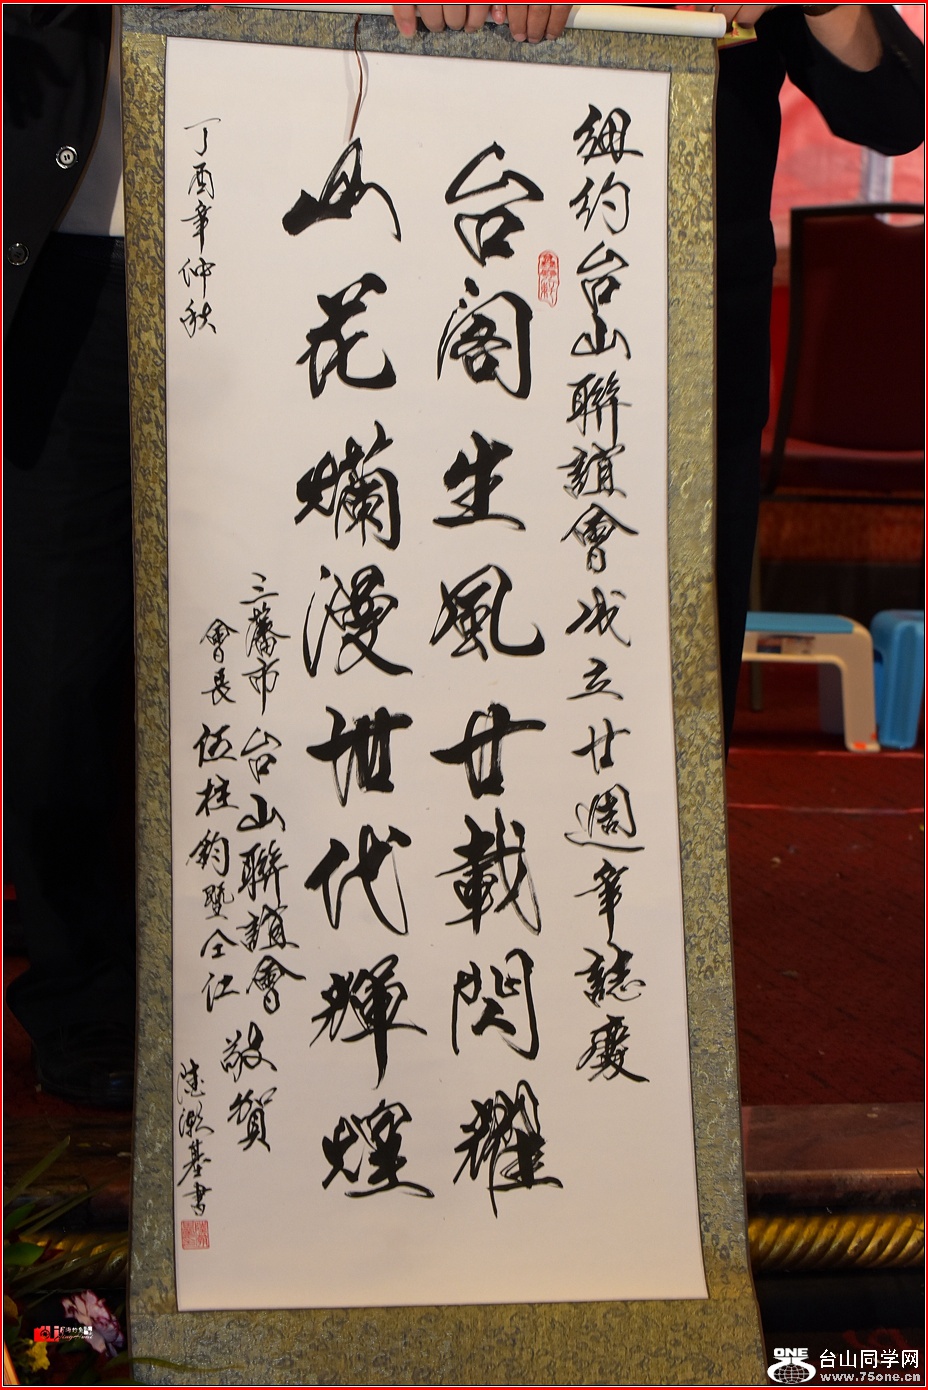 紐約台山聯誼會成立廿週年誌慶
台閣生風廿載閃耀
山花爛漫世代輝煌
三藩市台山聯誼會
會長伍桂鈞暨仝仁
敬賀
丁酉年仲秋
基書
ONE
台山同学网
www.75one.cn